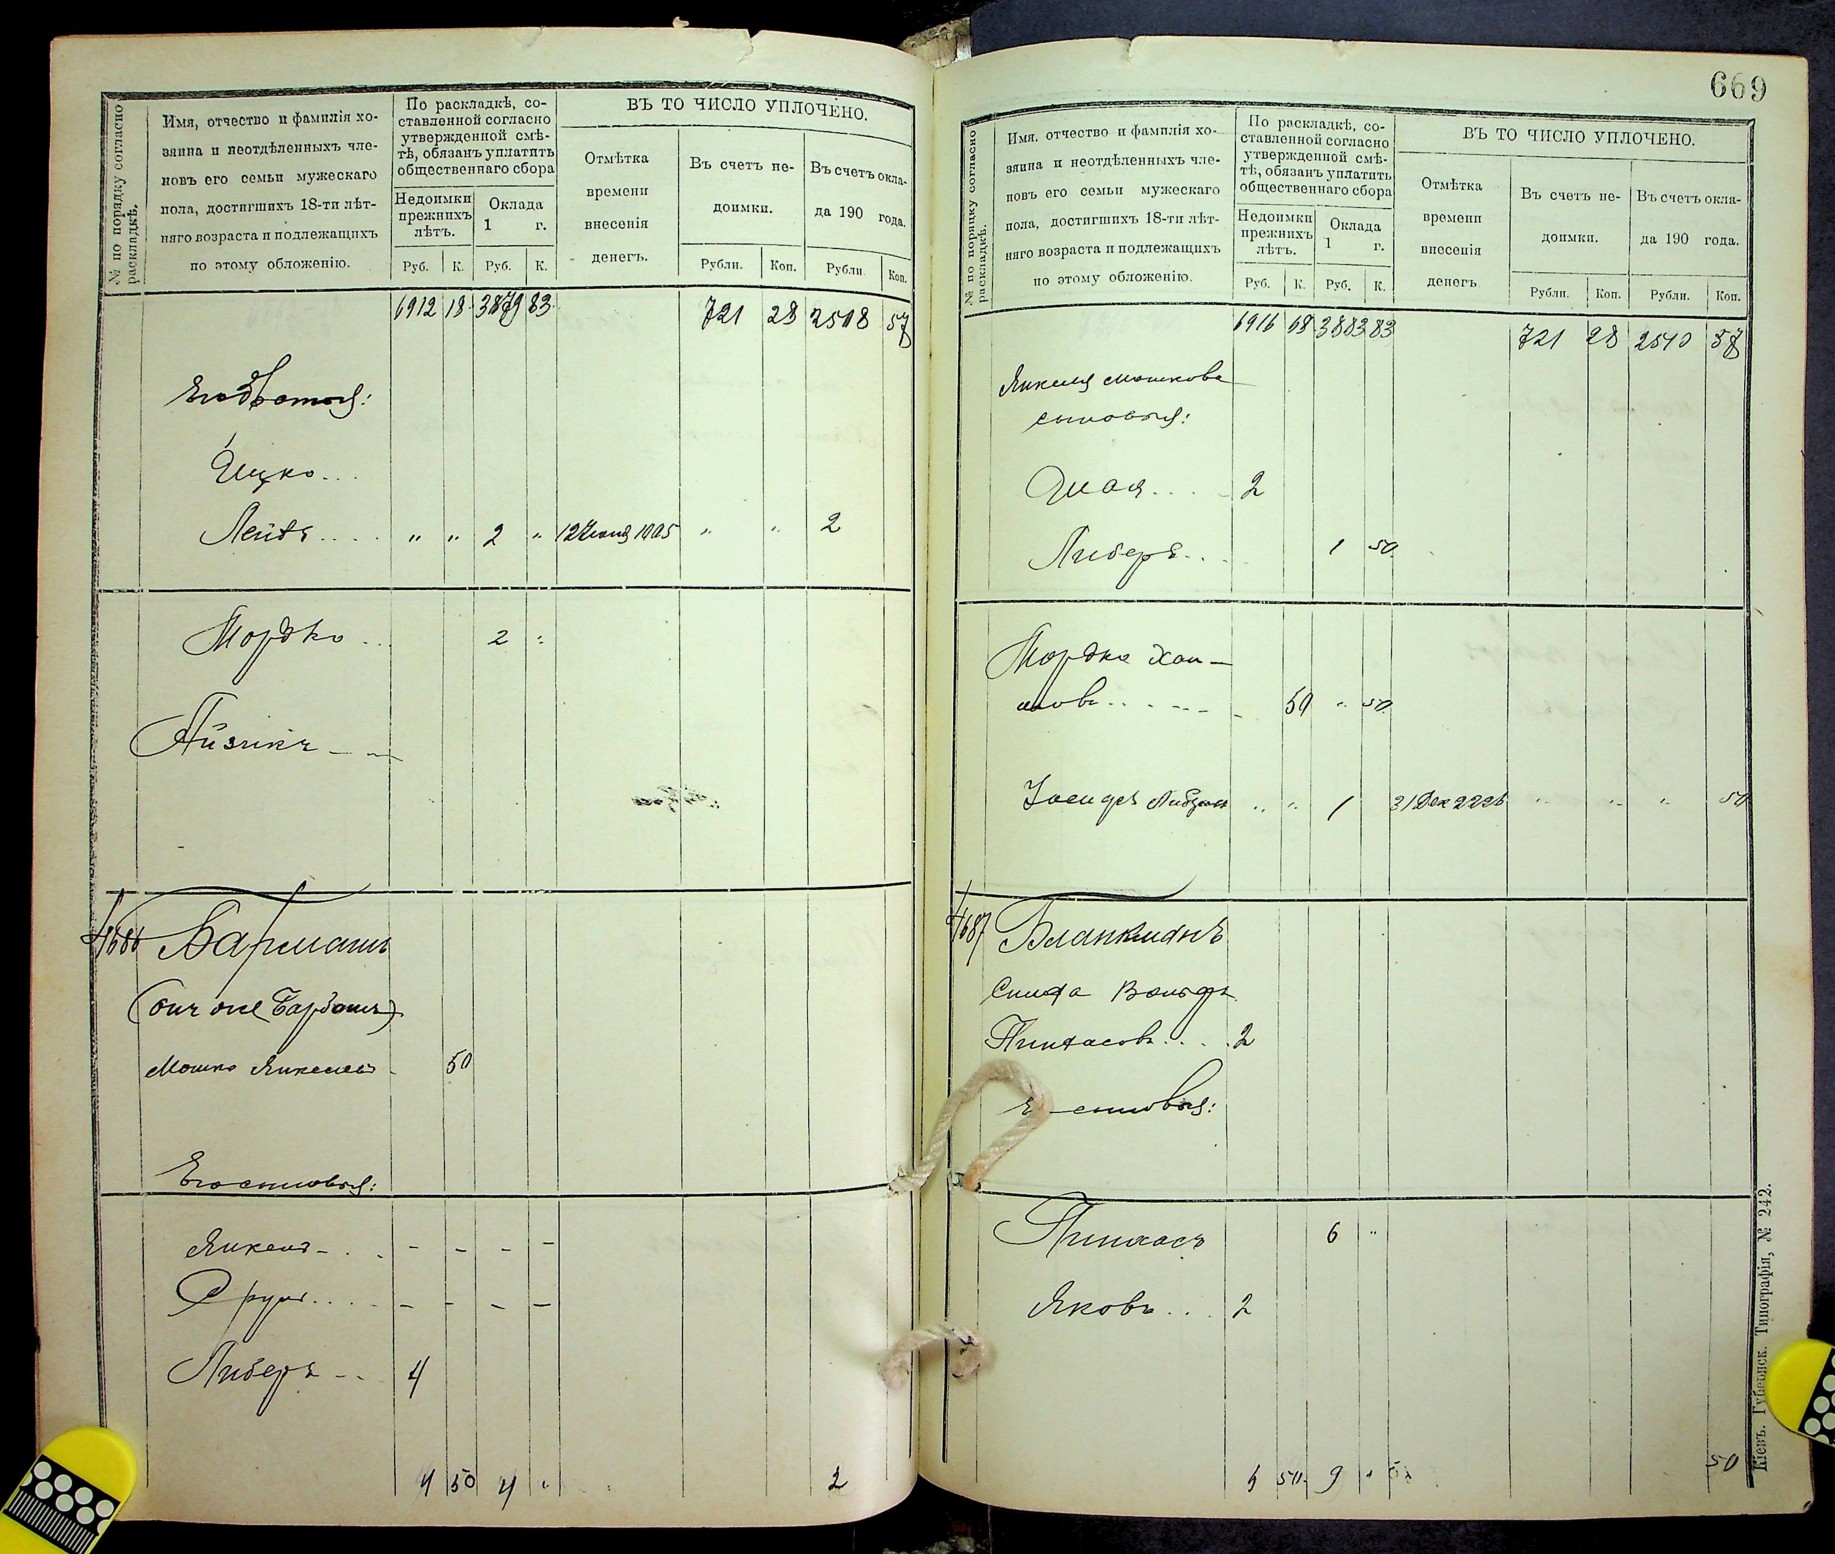 № по порядку согласно раскладкѣ.
Имя, отчество и фамилія хо-
зяина и неотдѣленныхъ чле-
новъ его семьи мужескаго
пола, достигшихъ 18-ти лѣт-
няго возраста и подлежащихъ
по этому обложенію.
По раскладкѣ, со-
ставленной согласно
утвержденной смѣ-
тѣ, обязанъ уплатить
общественнаго сбора
Недоимки
прежнихъ
лѣтъ.
Оклада
1 г.
Руб. К. Руб. К.
ВЪ ТО ЧИСЛО УПЛОЧЕНО.
Отмѣтка
времени
внесенія
денегъ.
Въ счетъ не-
доимки.
Рубли. Коп.
Въ счетъ окла-
да 190 года.
Рубли Коп.
6912 18 3879 83 721 28 2508 57
Его братья:
Ицко...
Лейба.... " " 2 " 12 Июня 1905 " " 2
Мордко .. 2 :
Айзикъ
4686 Барматъ
(онъ же Барбашъ)
Мошко Янкелевъ 50
Его сыновья:
Янкель - . . - - - -
Сруль.... - - - -
Либеръ - - . 4
4 50 4 " 2
669
№ по порядку согласно раскладкѣ.
Имя, отчество и фамилія хо-
зяина и неотдѣленныхъ чле-
новъ его семьи мужескаго
пола, достигшихъ 18-ти лѣт-
няго возраста и подлежащихъ
по этому обложенію.
По раскладкѣ, со-
ставленной согласно
утвержденной смѣ-
тѣ, обязанъ уплатить
общественнаго сбора
Недоимки
прежнихъ
лѣтъ.
Оклада
1 г.
Руб. К. Руб. К.
ВЪ ТО ЧИСЛО УПЛОЧЕНО.
Отмѣтка
времени
внесенія
денегъ.
Въ счетъ не-
доимки.
Рубли. Коп.
Въ счетъ окла-
да 190 года.
Рубли. Коп.
6916 68 3883 83 721 28 2510 57
Янкеля Мошкова
сыновья:
2
Либеръ... 1 50
Мордко Хаи-
мовъ 50 " 50
" " 1 31 Дек " " " 50
4687 Бланкманъ
Симха Вольфъ
Пинхасовъ.... 2
сыновья:
Пинхасъ 6 "
Яковъ... 2
50 9 50
Кіевъ. Губернск. Типографія, № 242.